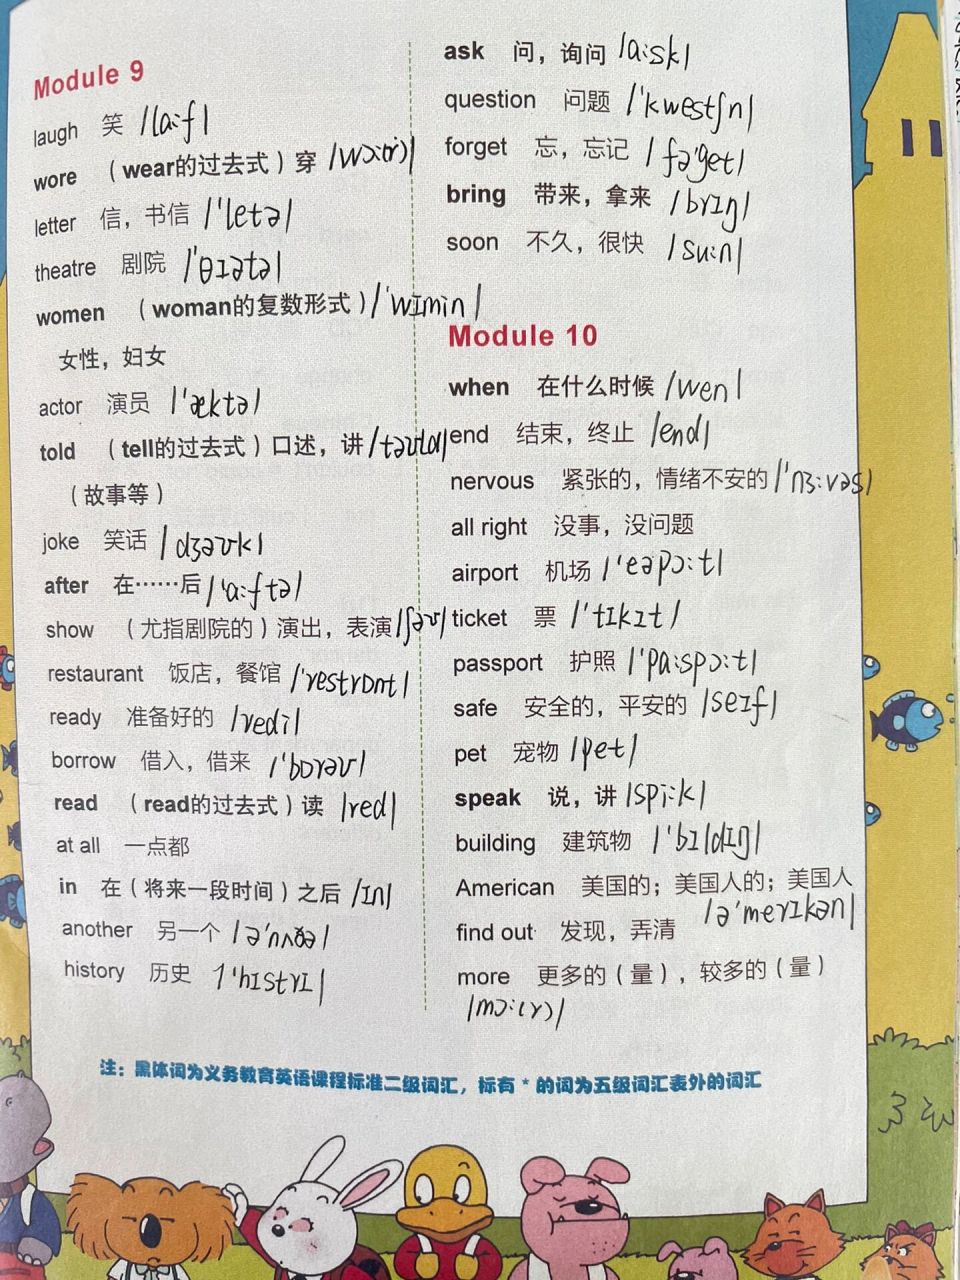 Module 9
laugh 笑 /lɑ:f/
wore （wear的过去式）穿 /wɔ:(r)/
letter 信，书信 /'letə/
theatre 剧院 /'θɪətə/
women （woman的复数形式）/'wɪmin/
女性，妇女
actor 演员 /'æktə/
told （tell的过去式）口述，讲 /təʊld/
（故事等）
joke 笑话 /dʒəʊk/
after 在……后 /'ɑ:ftə/
show （尤指剧院的）演出，表演 /ʃəʊ/
restaurant 饭店，餐馆 /'restrɒnt/
ready 准备好的 /redi/
borrow 借入，借来 /'bɒrəʊ/
read （read的过去式）读 /red/
at all 一点都
in 在（将来一段时间）之后 /ɪn/
another 另一个 /ə'nʌðə/
history 历史 /'hɪstrɪ/
ask 问，询问 /ɑ:sk/
question 问题 /'kwestʃn/
forget 忘，忘记 /fə'get/
bring 带来，拿来 /brɪŋ/
soon 不久，很快 /su:n/
Module 10
when 在什么时候 /wen/
end 结束，终止 /end/
nervous 紧张的，情绪不安的 /'nɜ:vəs/
all right 没事，没问题
airport 机场 /'eəpɔ:t/
ticket 票 /'tɪkɪt/
passport 护照 /'pɑ:spɔ:t/
safe 安全的，平安的 /seɪf/
pet 宠物 /pet/
speak 说，讲 /spi:k/
building 建筑物 /'bɪldɪŋ/
American 美国的；美国人的；美国人
/ə'merɪkən/
find out 发现，弄清
more 更多的（量），较多的（量）
/mɔ:(r)/
注：黑体词为义务教育英语课程标准二级词汇，标有 * 的词为五级词汇表外的词汇